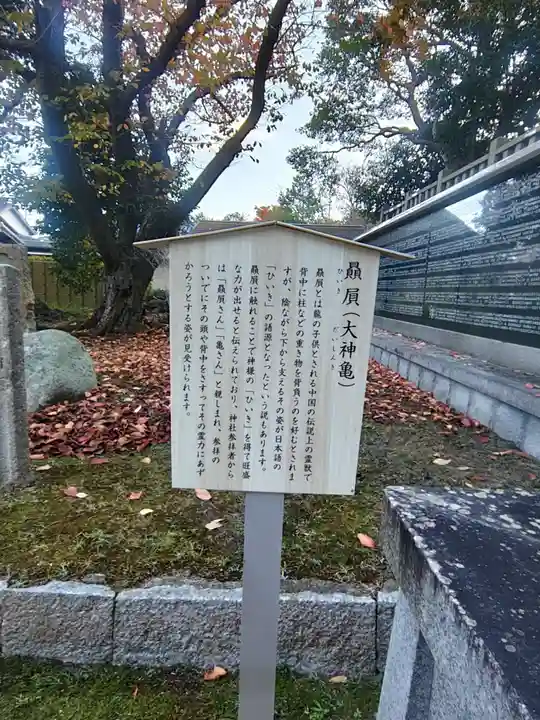 贔屓（大神亀）
ひいき　だいしんき
贔屓とは龍の子供とされる中国の伝説上の霊獣で
背中に柱などの重き物を背負うのを好むとされま
すが、陰ながら下から支えるその姿が日本語の
「ひいき」の語源となったという説もあります。
贔屓に触れることで神様の「ひいき」を得て旺盛
な力が出せると伝えられており、神社参拝者から
は「贔屓さん」「亀さん」と親しまれ、参拝の
ついでにその頭や背中をさすってその霊力にあず
かろうとする姿が見受けられます。